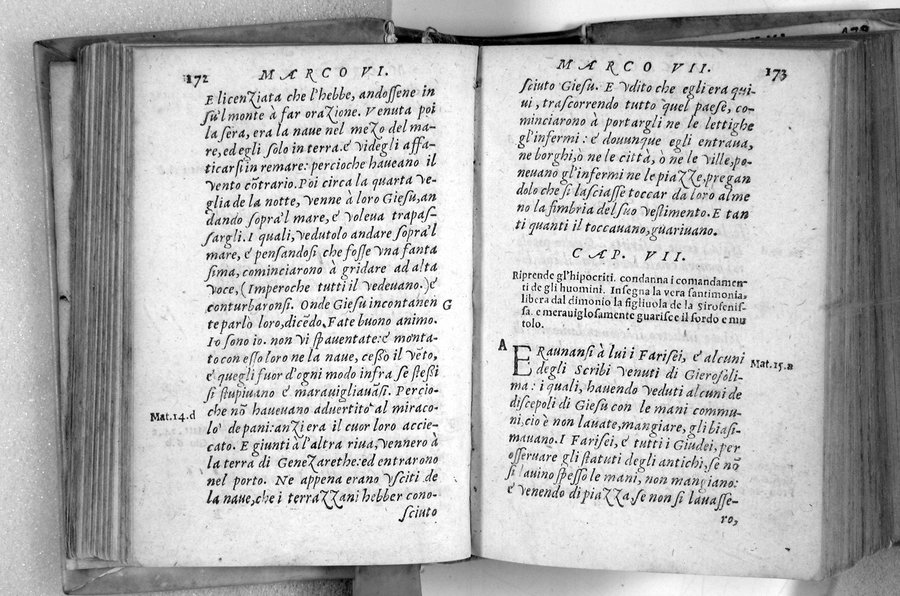 172
MARCO VI.
E licenziata che l'hebbe, andossene in
su'l monte à far orazione. Venuta poi
la sera, era la naue nel mezo del ma-
re, ed egli solo in terra. é videgli affa-
ticarsi in remare: percioche haueano il
vento cōtrario. Poi circa la quarta ve-
glia de la notte, venne à loro Giesu, an
dando sopra'l mare, é voleua trapas-
sargli. I quali, vedutolo andare sopra'l
mare, é pensandosi che fosse vna fanta
sima, cominciarono à gridare ad alta
voce, (Imperoche tutti il vedeuano.) é
conturbaronsi. Onde Giesu incontanen
G
te parlò loro, dicēdo, Fate buono animo.
Io sono io. non vi spauentate: é monta-
to con esso loro ne la naue, cessò il vēto,
é quegli fuor d'ogni modo infra se stessi
si stupiuano é marauigliauāsi. Percio-
Mat.14.d
che nō haueuano aduertito al miraco-
lo de pani: anzi era il cuor loro accie-
cato. E giunti à l'altra riua, vennero à
la terra di Genezarethe: ed entrarono
nel porto. Ne appena erano vsciti de
la naue, che i terrazzani hebber cono-
sciuto
MARCO VII.
173
sciuto Giesu. E vdito che egli era qui-
ui, trascorrendo tutto quel paese, co-
minciarono à portargli ne le lettighe
gl'infermi: é douunque egli entraua,
ne borghi, ò ne le città, ò ne le ville, po-
neuano gl'infermi ne le piazze, pregan
dolo che si lasciasse toccar da loro alme
no la fimbria del suo vestimento. E tan
ti quanti il toccauano, guariuano.
CAP. VII.
Riprende gl'hipocriti. condanna i comandamen-
ti de gli huomini. Insegna la vera santimonia,
libera dal dimonio la figliuola de la Sirofenis-
sa. e merauiglosamente guarisce il sordo e mu
tolo.
A
ERaunansi à lui i Farisei, é alcuni
Mat.15.a
degli Scribi venuti di Gierosoli-
ma: i quali, hauendo veduti alcuni de
discepoli di Giesu con le mani commu-
ni, cio è non lauate, mangiare, gli biasi-
mauano. I Farisei, é tutti i Giudei, per
osseruare gli statuti degli antichi, se nō
si lauino spesso le mani, non mangiano:
é venendo di piazza, se non si lauasse-
ro,